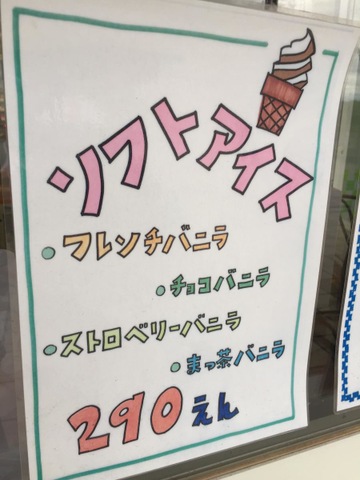 ソフトアイス
・フレンチバニラ
・チョコバニラ
・ストロベリーバニラ
・まっ茶バニラ
290えん